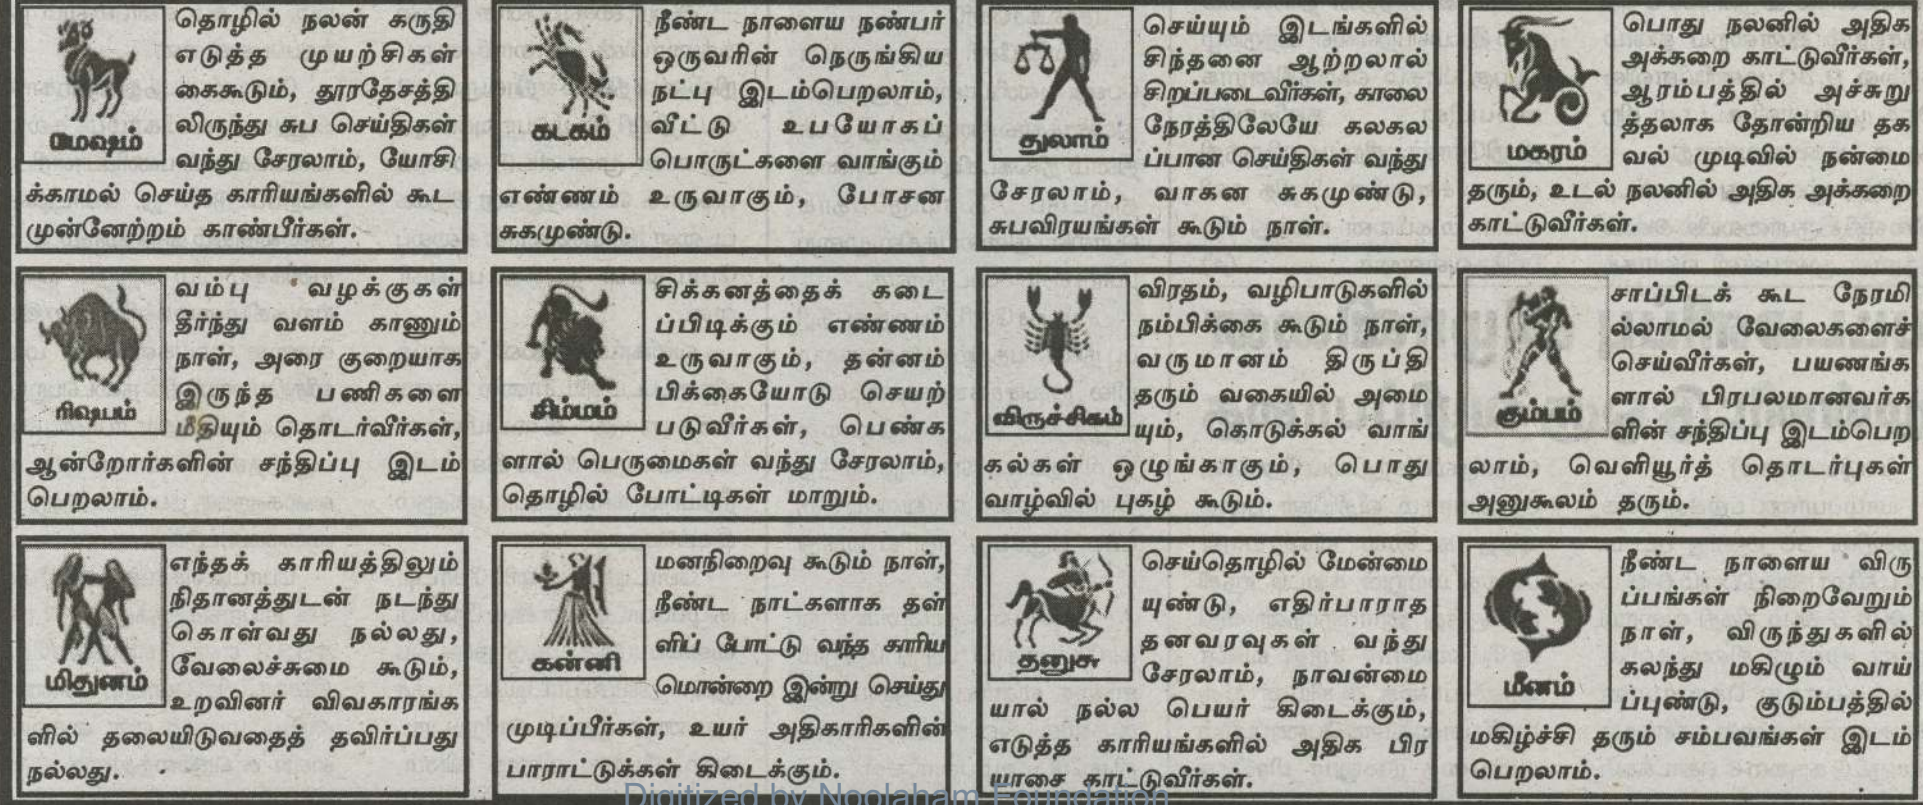 மேஷம்
தொழில் நலன் கருதி
எடுத்த முயற்சிகள்
கைகூடும், தூரதேசத்தி
லிருந்து சுப செய்திகள்
வந்து சேரலாம், யோசி
க்காமல் செய்த காரியங்களில் கூட
முன்னேற்றம் காண்பீர்கள்.
ரிஷபம்
வம்பு வழக்குகள்
தீர்ந்து வளம் காணும்
நாள், அரை குறையாக
இருந்த பணிகளை
மீதியும் தொடர்வீர்கள்,
ஆன்றோர்களின் சந்திப்பு இடம்
பெறலாம்.
மிதுனம்
எந்தக் காரியத்திலும்
நிதானத்துடன் நடந்து
கொள்வது நல்லது,
வேலைச்சுமை கூடும்,
உறவினர் விவகாரங்க
ளில் தலையிடுவதைத் தவிர்ப்பது
நல்லது.
கடகம்
நீண்ட நாளைய நண்பர்
ஒருவரின் நெருங்கிய
நட்பு இடம்பெறலாம்,
வீட்டு உபயோகப்
பொருட்களை வாங்கும்
எண்ணம் உருவாகும், போசன
சுகமுண்டு.
சிம்மம்
சிக்கனத்தைக் கடை
ப்பிடிக்கும் எண்ணம்
உருவாகும், தன்னம்
பிக்கையோடு செயற்
படுவீர்கள், பெண்க
ளால் பெருமைகள் வந்து சேரலாம்,
தொழில் போட்டிகள் மாறும்.
கன்னி
மனநிறைவு கூடும் நாள்,
நீண்ட நாட்களாக தள்
ளிப் போட்டு வந்த காரிய
மொன்றை இன்று செய்து
முடிப்பீர்கள், உயர் அதிகாரிகளின்
பாராட்டுக்கள் கிடைக்கும்.
துலாம்
செய்யும் இடங்களில்
சிந்தனை ஆற்றலால்
சிறப்படைவீர்கள், காலை
நேரத்திலேயே கலகல
ப்பான செய்திகள் வந்து
சேரலாம், வாகன சுகமுண்டு,
சுபவிரயங்கள் கூடும் நாள்.
விருச்சிகம்
விரதம், வழிபாடுகளில்
நம்பிக்கை கூடும் நாள்,
வருமானம் திருப்தி
தரும் வகையில் அமை
யும், கொடுக்கல் வாங்
கல்கள் ஒழுங்காகும், பொது
வாழ்வில் புகழ் கூடும்.
தனுசு
செய்தொழில் மேன்மை
யுண்டு, எதிர்பாராத
தனவரவுகள் வந்து
சேரலாம், நாவன்மை
யால் நல்ல பெயர் கிடைக்கும்,
எடுத்த காரியங்களில் அதிக பிர
யாசை காட்டுவீர்கள்.
மகரம்
பொது நலனில் அதிக
அக்கறை காட்டுவீர்கள்,
ஆரம்பத்தில் அச்சுறு
த்தலாக தோன்றிய தக
வல் முடிவில் நன்மை
தரும், உடல் நலனில் அதிக அக்கறை
காட்டுவீர்கள்.
கும்பம்
சாப்பிடக் கூட நேரமி
ல்லாமல் வேலைகளைச்
செய்வீர்கள், பயணங்க
ளால் பிரபலமானவர்க
ளின் சந்திப்பு இடம்பெற
லாம், வெளியூர்த் தொடர்புகள்
அனுகூலம் தரும்.
மீனம்
நீண்ட நாளைய விரு
ப்பங்கள் நிறைவேறும்
நாள், விருந்துகளில்
கலந்து மகிழும் வாய்
ப்புண்டு, குடும்பத்தில்
மகிழ்ச்சி தரும் சம்பவங்கள் இடம்
பெறலாம்.
Digitized by Noolaham Foundation